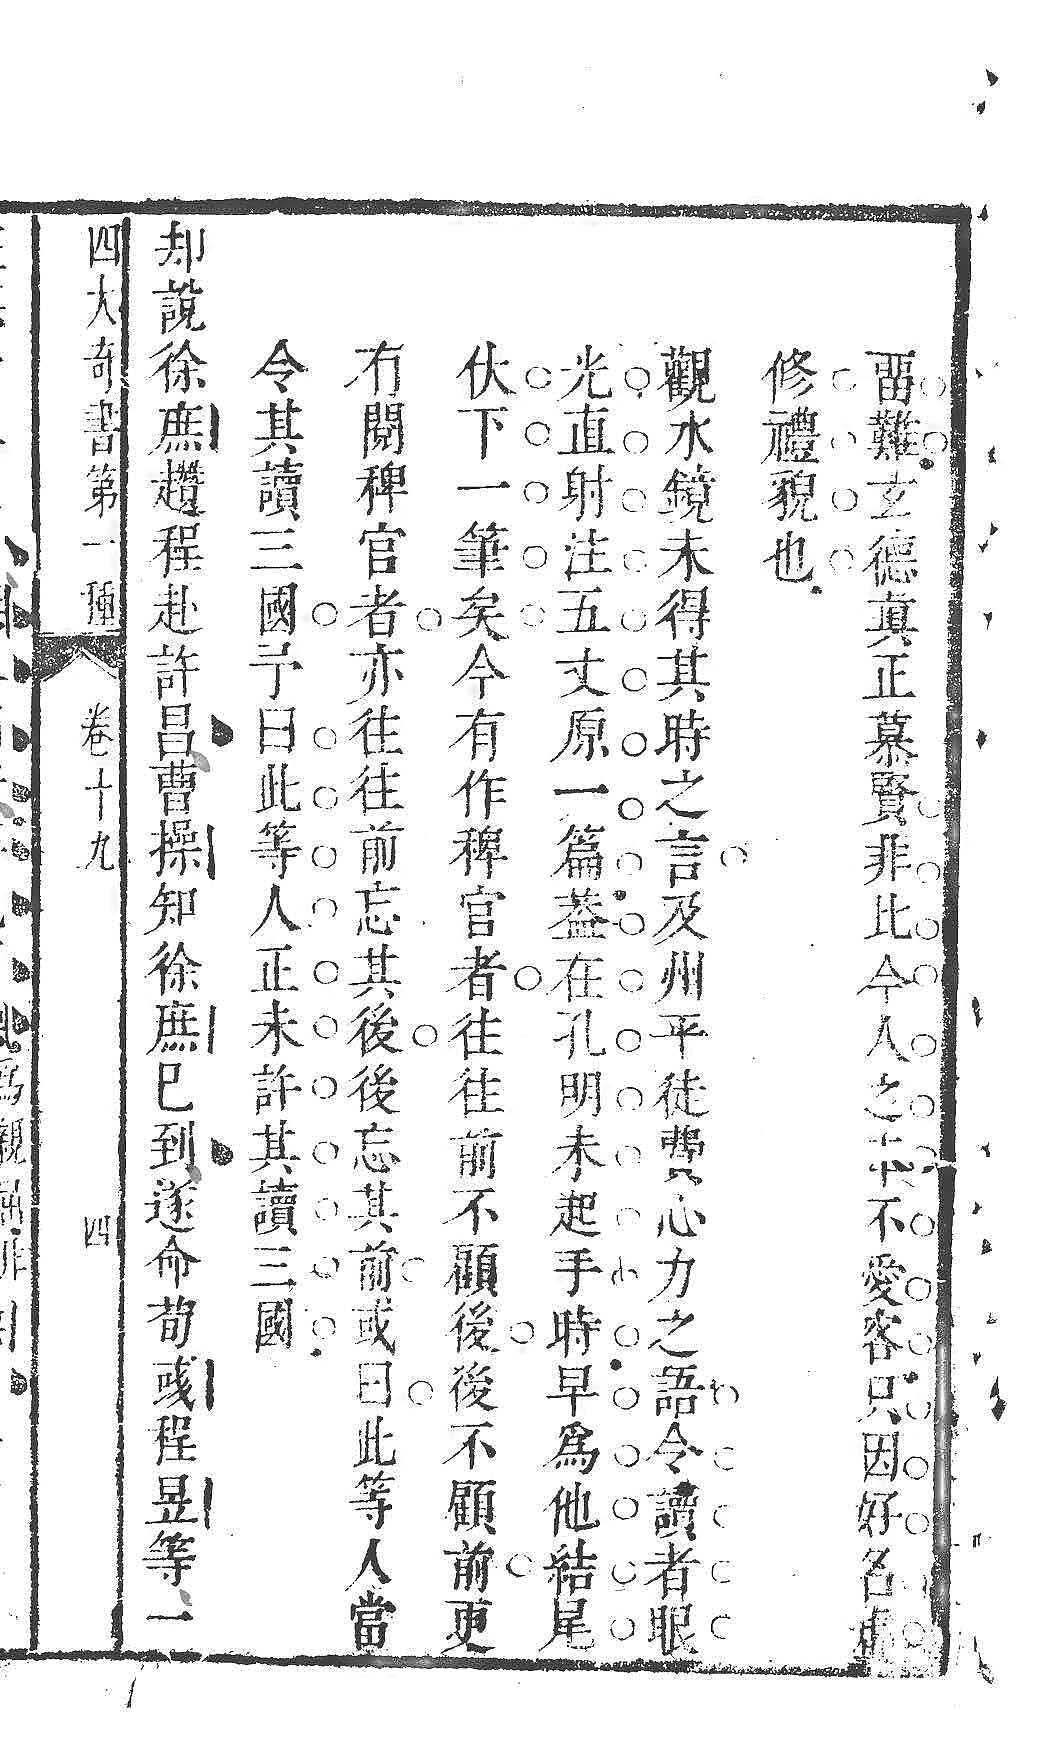 畱難玄德真正慕賢非比今人之本不愛客只因好名虛
修禮貌也
觀水鏡未得其時之言及州平徒費心力之語令讀者眼
光直射注五丈原一篇葢在孔明未起手時早爲他結尾
伏下一筆矣今有作稗官者往往前不顧後後不顧前更
有閱稗官者亦往往前忘其後後忘其前或曰此等人當
令其讀三國予曰此等人正未許其讀三國
却說徐庶趲程赴許昌曹操知徐庶已到遂命荀彧程昱等一
四大奇書第一種 卷十九 四